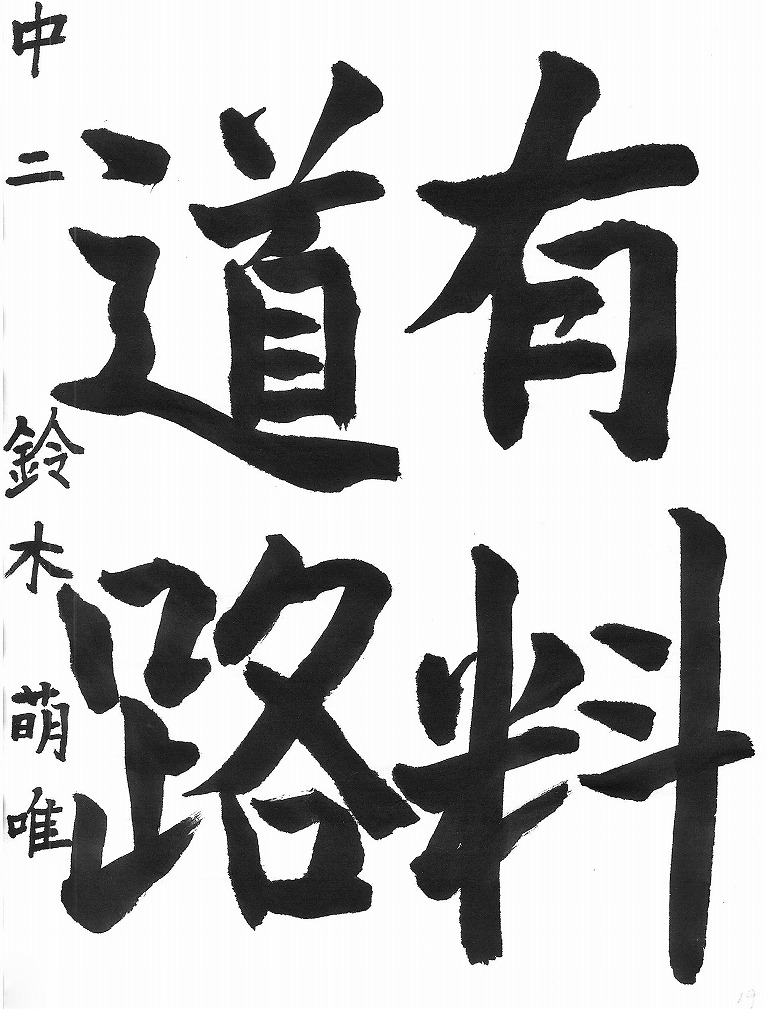 有料
道路
中二 鈴木 萌唯
19